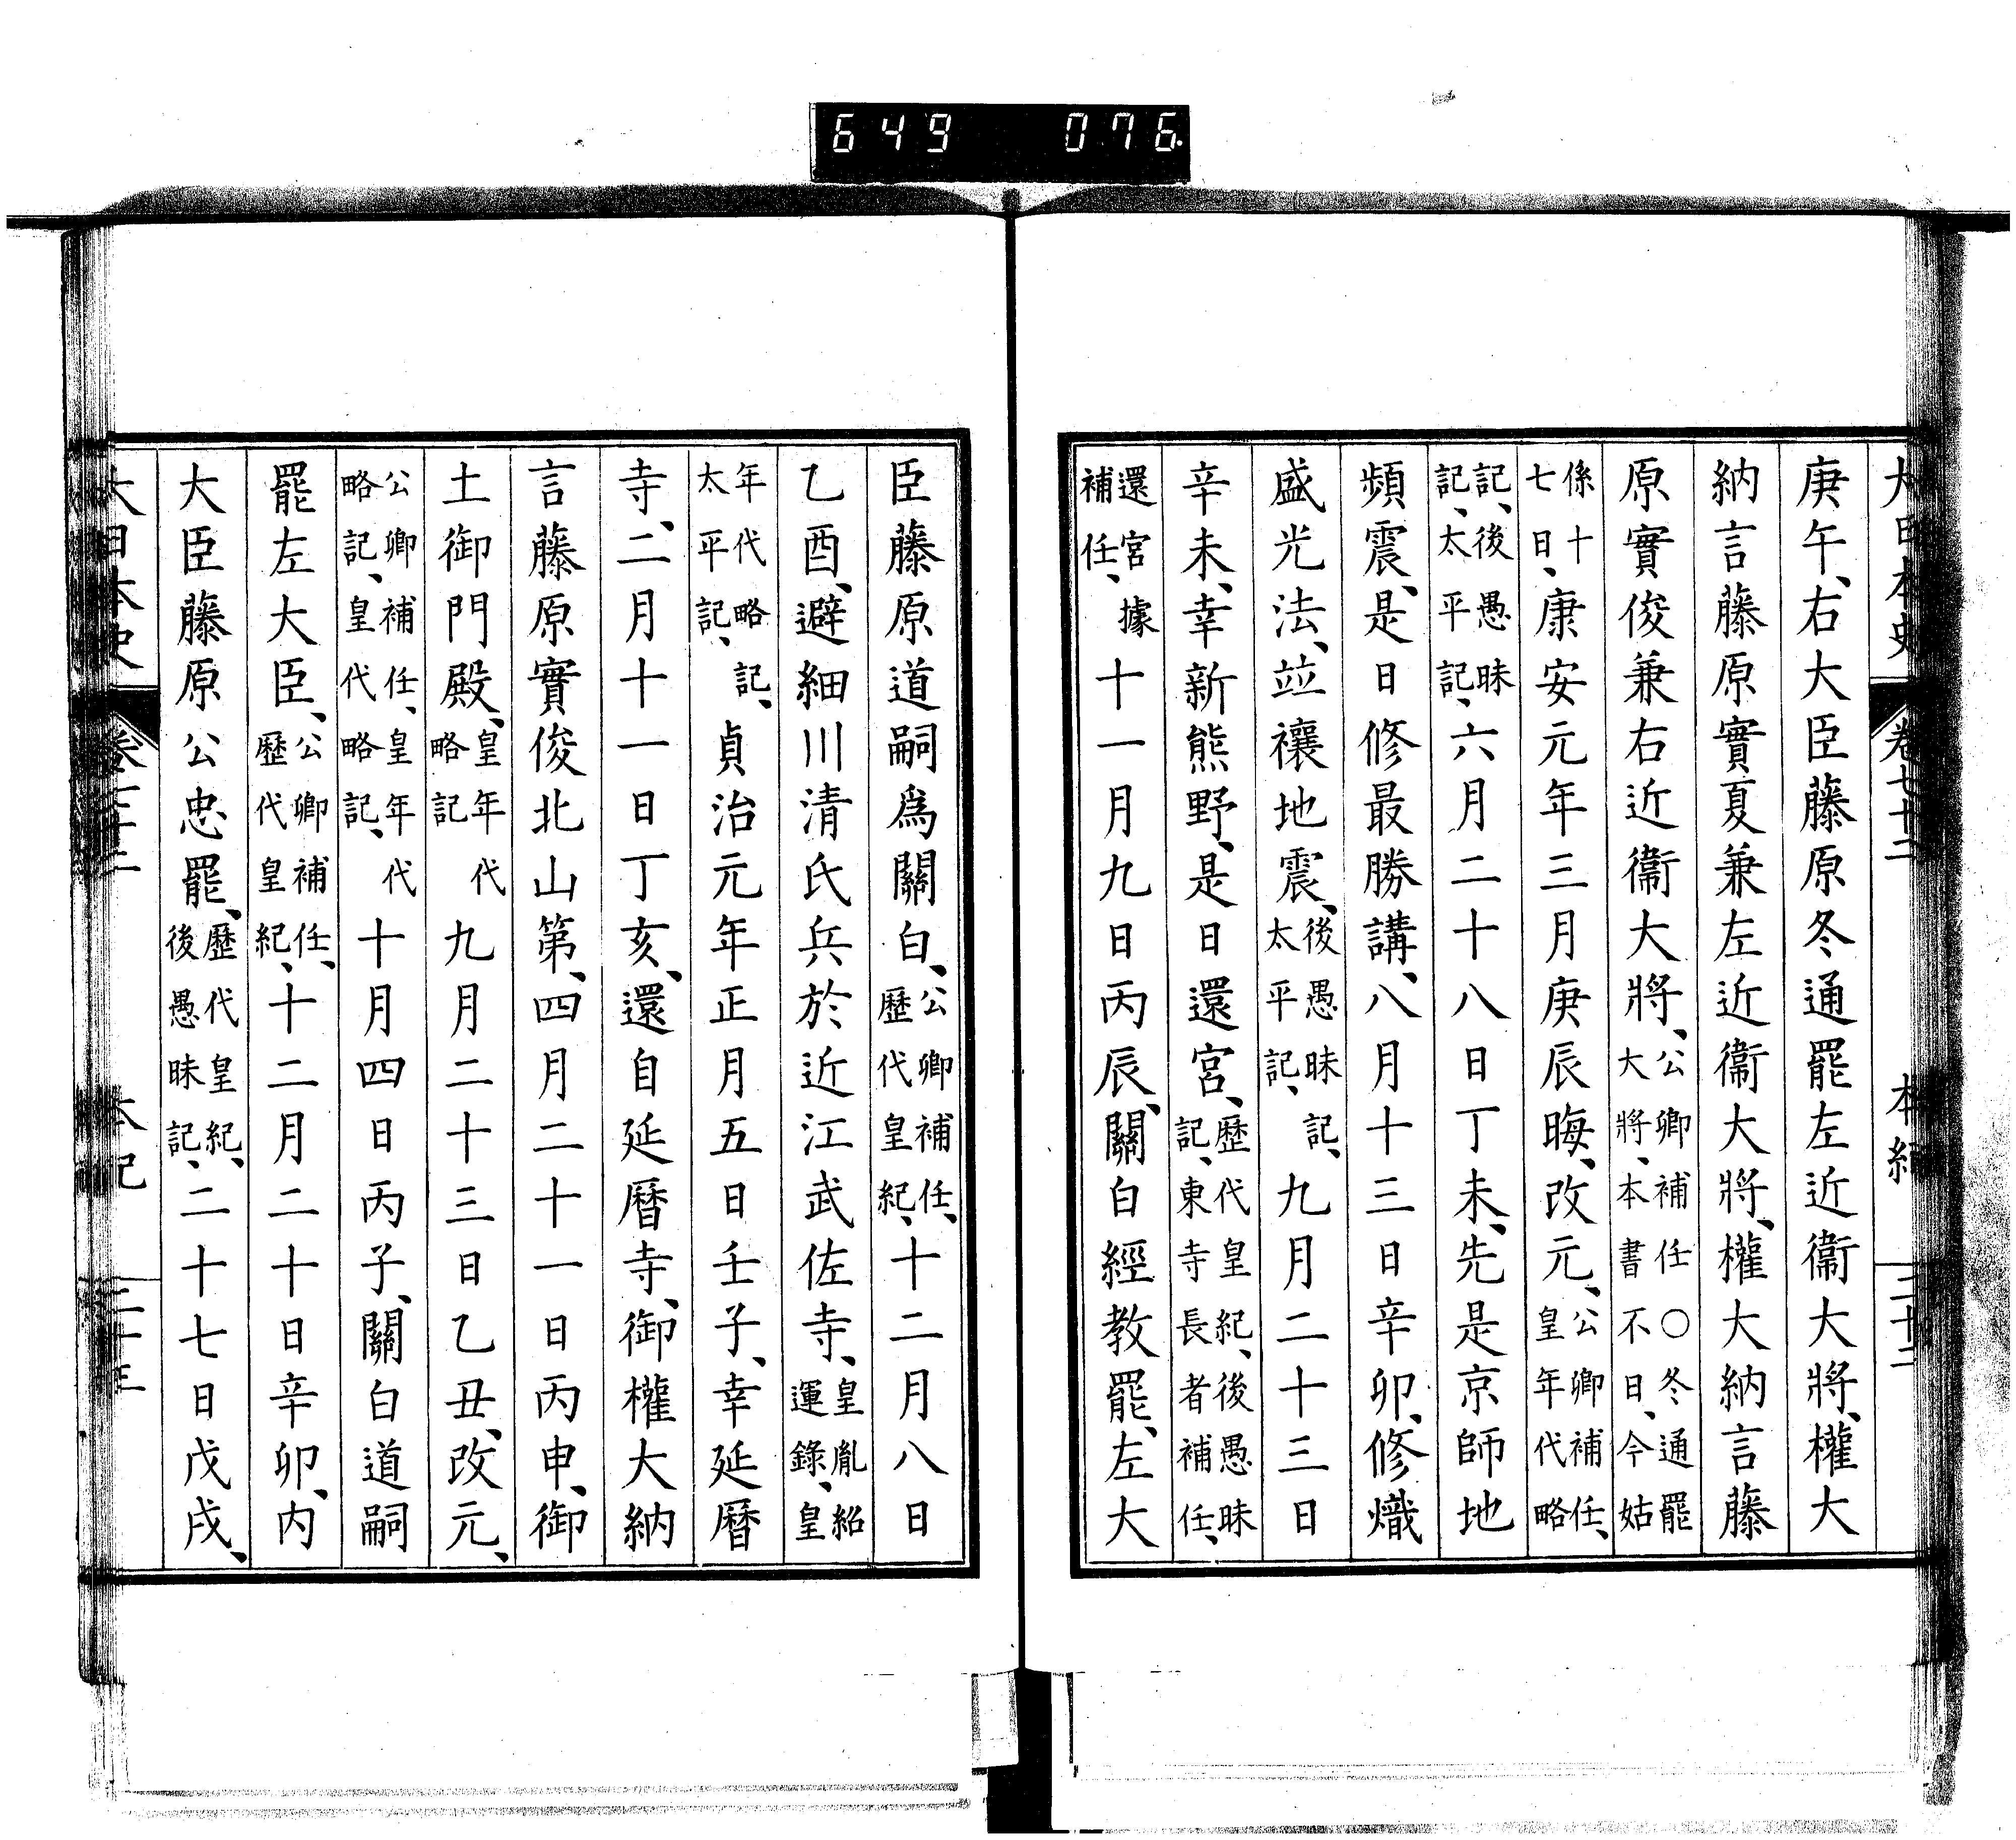 649 076
大日本史 卷七十二 本紀 二十二
庚午、右大臣藤原冬通罷左近衞大將、權大
納言藤原實夏兼左近衞大將、權大納言藤
原實俊兼右近衞大將、公卿補任○冬通罷大將、本書不日、今姑
係十七日、康安元年三月庚辰晦、改元、公卿補任、皇年代略
記、後愚昧記、太平記、六月二十八日丁未、先是京師地
頻震、是日修最勝講、八月十三日辛卯、修熾
盛光法、竝禳地震、後愚昧記、太平記、九月二十三日
辛未、幸新熊野、是日還宮、歷代皇紀、後愚昧記、東寺長者補任、
還宮據補任、十一月九日丙辰、關白經教罷、左大
臣藤原道嗣爲關白、公卿補任、歷代皇紀、十二月八日
乙酉、避細川清氏兵於近江武佐寺、皇胤紹運錄、皇
年代略記、太平記、貞治元年正月五日壬子、幸延曆
寺、二月十一日丁亥、還自延曆寺、御權大納
言藤原實俊北山第、四月二十一日丙申、御
土御門殿、皇年代略記九月二十三日乙丑、改元、
公卿補任、皇年代略記、皇代略記、十月四日丙子、關白道嗣
罷左大臣、公卿補任、歷代皇紀、十二月二十日辛卯、內
大臣藤原公忠罷、歷代皇紀、後愚昧記、二十七日戊戌、
大日本史